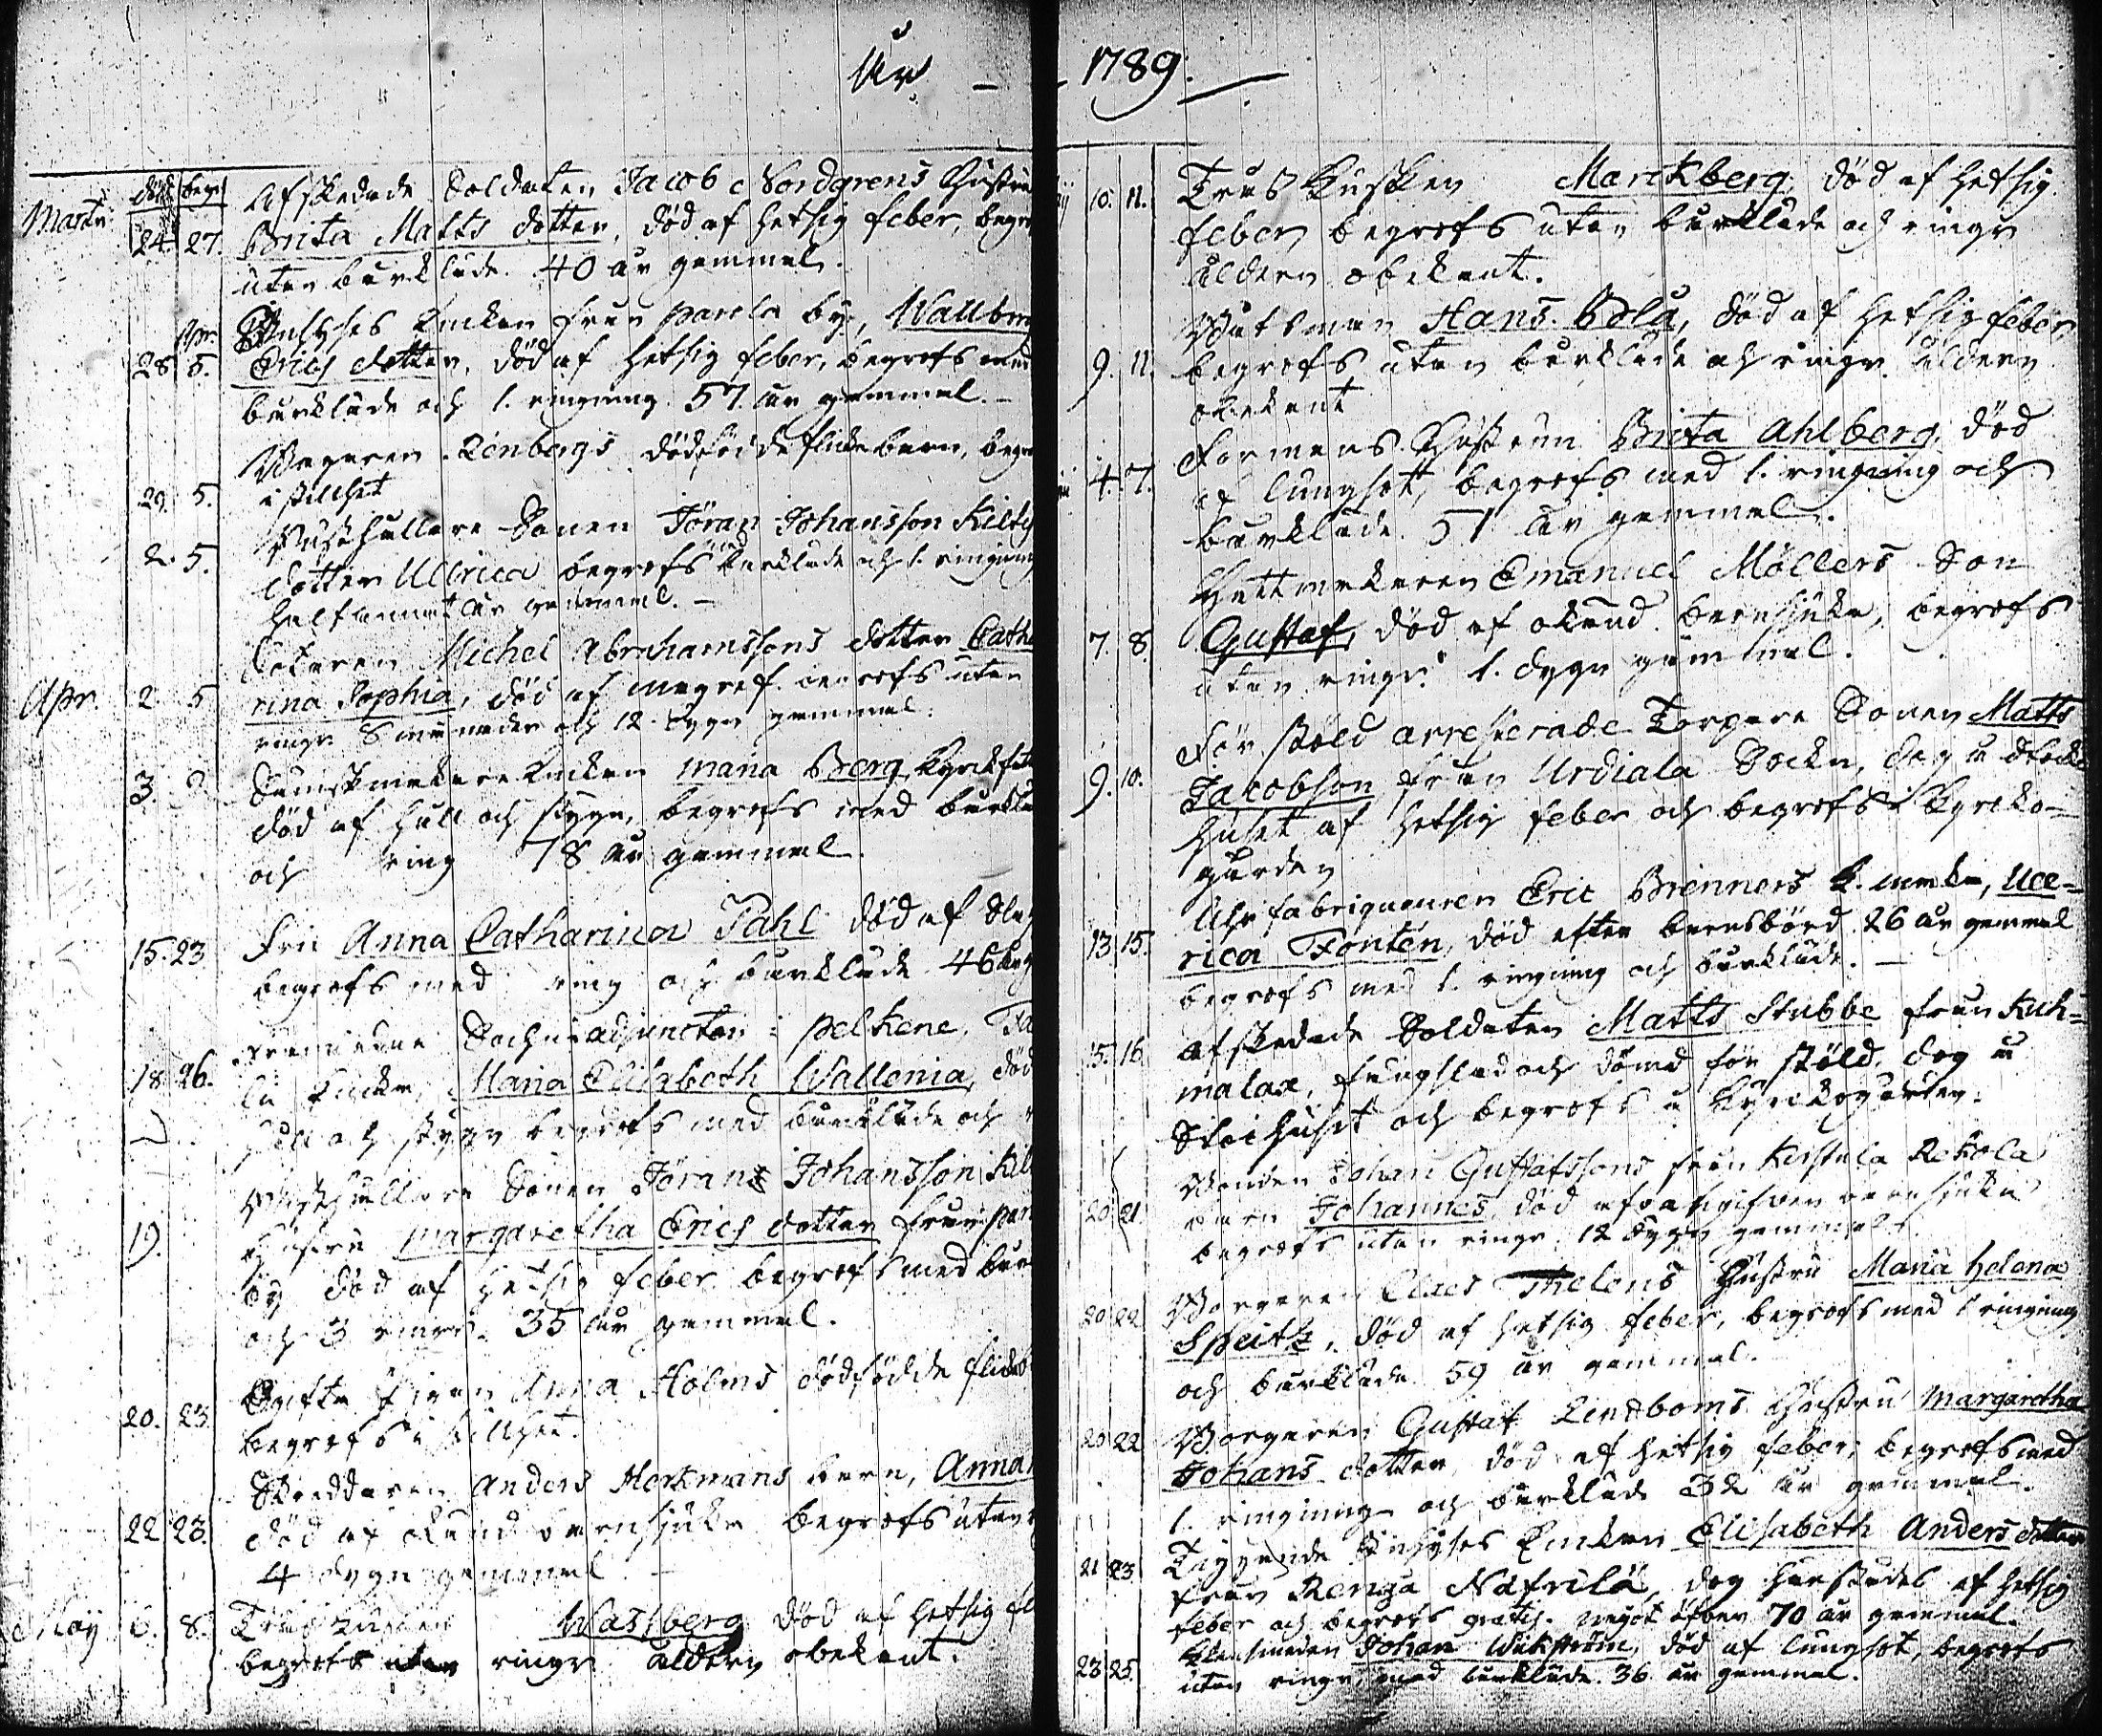 År
död begr
Martii
Afskedade Soldaten Jacob Nordgrens Hustru
24. 27. Brita Matts dotter, död af hetsig feber, begr
utan bårkläde. 40 år gammal.
Apr. Inhyses Enkan från parola by, Wallbor
28 5. Erics dotter, död af hetsig feber, begrofs med
bårkläde och 1. ringning 57. år gammal.
Bagaren Renbergs dödfödde flickebarn, begr
29. 5. i stillhet
Rusthållare Sonen Jöran Johansson Kilty
2. 5. dotter Ullrica begrofs med bårkläde och 1. ringning
half annat år gammal.
Michel Abrahamssons dotter Catha
Apr. 2 5 rina Sophia, död af begrofs utan
ringn. 8 månader och 12. dygn gammal.
3. Enkan Maria Berg,
död af håll och styng, begrofs med bårklä
och ring 78 år gammal.
15. 23 Fru Anna Catharina Pahl död af Slag
begrofs med ring och bårkläde 46
Sockne adjuncten i pelkene,
18. 26. Enka, Maria Elisabeth Wallenia, död
håll och styng begrofs med bårkläde och
Rusthållare Sonen Jörans Johansson Kil
19. Hustru margaretha Erics dotter från par
by död af hetsig feber begrofs med bår
och 3 ringn. 35 år gammal.
Ogifta Pigan Anna Holms dödfödde flickeb
20. 23. begrofs i stillhet.
Skreddaren Anders Herkmans barn, Anna
22 23. död af okänd barnsjuka begrofs utan
4 dygn gammal
May 6. 8. Wassberg död af hetsig fe
begrofs utan ringn ålderen obekant.
1789.
10. 11. Tross Kusken Marckberg, död af hetsig
feber begrofs utan bårkläde och ringn
ålderen obekant.
Båtsman Hans Bolå, död af hetsig feber,
9. 11. begrofs utan bårkläde och ringn. ålderen
obekant
Hustrun Brita Ahlberg, död
4. 7. af lungsot, begrofs med 1. ringning och
bårkläde. 51 år gammal.
Hattmakaren Emanuel Möllers Son
7. 8. Gustaf, död af okänd barnsjuka, begrofs
utan ringn. 1. dygn gammal.
För stöld arresterade Torpare Sonen Matts
9. 10. Jacobson från Urdiala Sockn, dog i Stock
huset af hetsig feber och begrofs i Kyrcko-
gården
Uhrfabriqueuren Eric Brenners K. maka, Ulle-
13 15. rica Fontén, död efter barnsbörd. 26 år gammal
begrofs med 1. ringning och bårkläde.
Afskedade Soldaten Matts Stubbe från Kuh-
15. 16 malax, fängslad och dömd för stöld, dog i
huset och begrofs i Kyrckogården.
Bonden Johan Gustafssons från Kerstula Rekola
20 21. barn Johannes död af oangifven barnsjuka
begrofs utan ringn. 12 dygn gammal.
Borgaren Claes Thelens Hustru Maria helena
20 22 Speitz, död af hetsig feber, begrofs med 1 ringning
och bårkläde 59 år gammal.
Borgaren Gustaf Lindboms Hustru margaretha
20 22 Johans dotter, död af hetsig feber, begrofs med
1. ringning och bårkläde 32 år gammal.
Tiggande Inhyses Enkan Elisabeth Anders dotter
21 23 från Renga Näfrilä, dog af hetsig
feber och begrofs gratis. något öfver 70 år gammal.
Klensmeden Johan Wikström, död af lungsot, begrofs
23 25. utan ringn, med bårkläde. 36 år gammal.